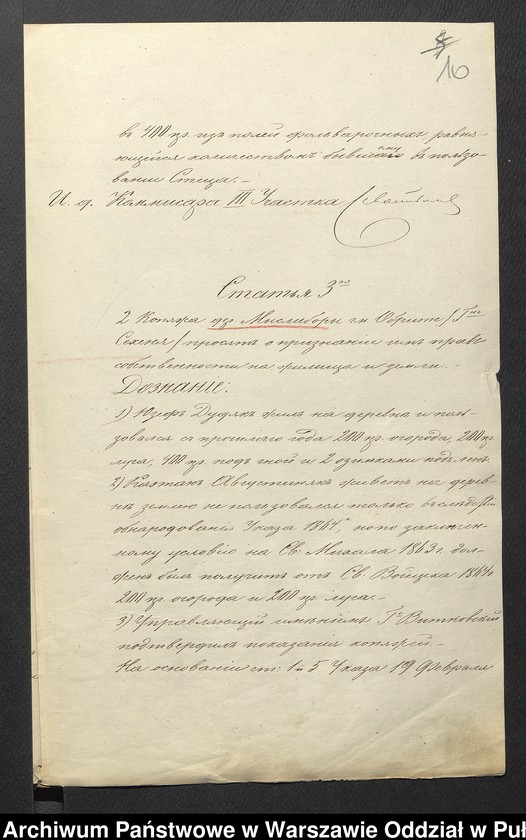 8
10
въ 400 пр. изъ полей фольварочныхъ равня-
ющейся количествомъ бывшему въ пользо-
ваніи Стеца.-
И. д. Коммисара III Участка
Статья 3ая
2 Коморника дер. Мыслиборы гм Обрыте /Гна
просятъ о признаніи имъ прав
собственности на жилища и земли.-
Дознаніе:
1) Юзефъ Дудякъ жилъ на деревнѣ и поль-
зовался съ прошлаго года 200 пр. огорода, 200 пр.
луга, 400 пр. подъ и 2
2) Каэтанъ Августинякъ живетъ на дерев-
нѣ землею не пользовался только
обнародованія Указа 1864г но по заключен-
ному условію на Св: Михала 1863 г. дол-
женъ былъ получить отъ Св. Войцеха 1864г
200 пр. огорода и 200 пр. луга.-
3) Управляющій имѣніемъ Гнъ Витковскій
подтвердилъ показанія
На основаніи ст: 1 и 5 Указа 19 Февраля
Archiwum Państwowe w Warszawie Oddział w Puł